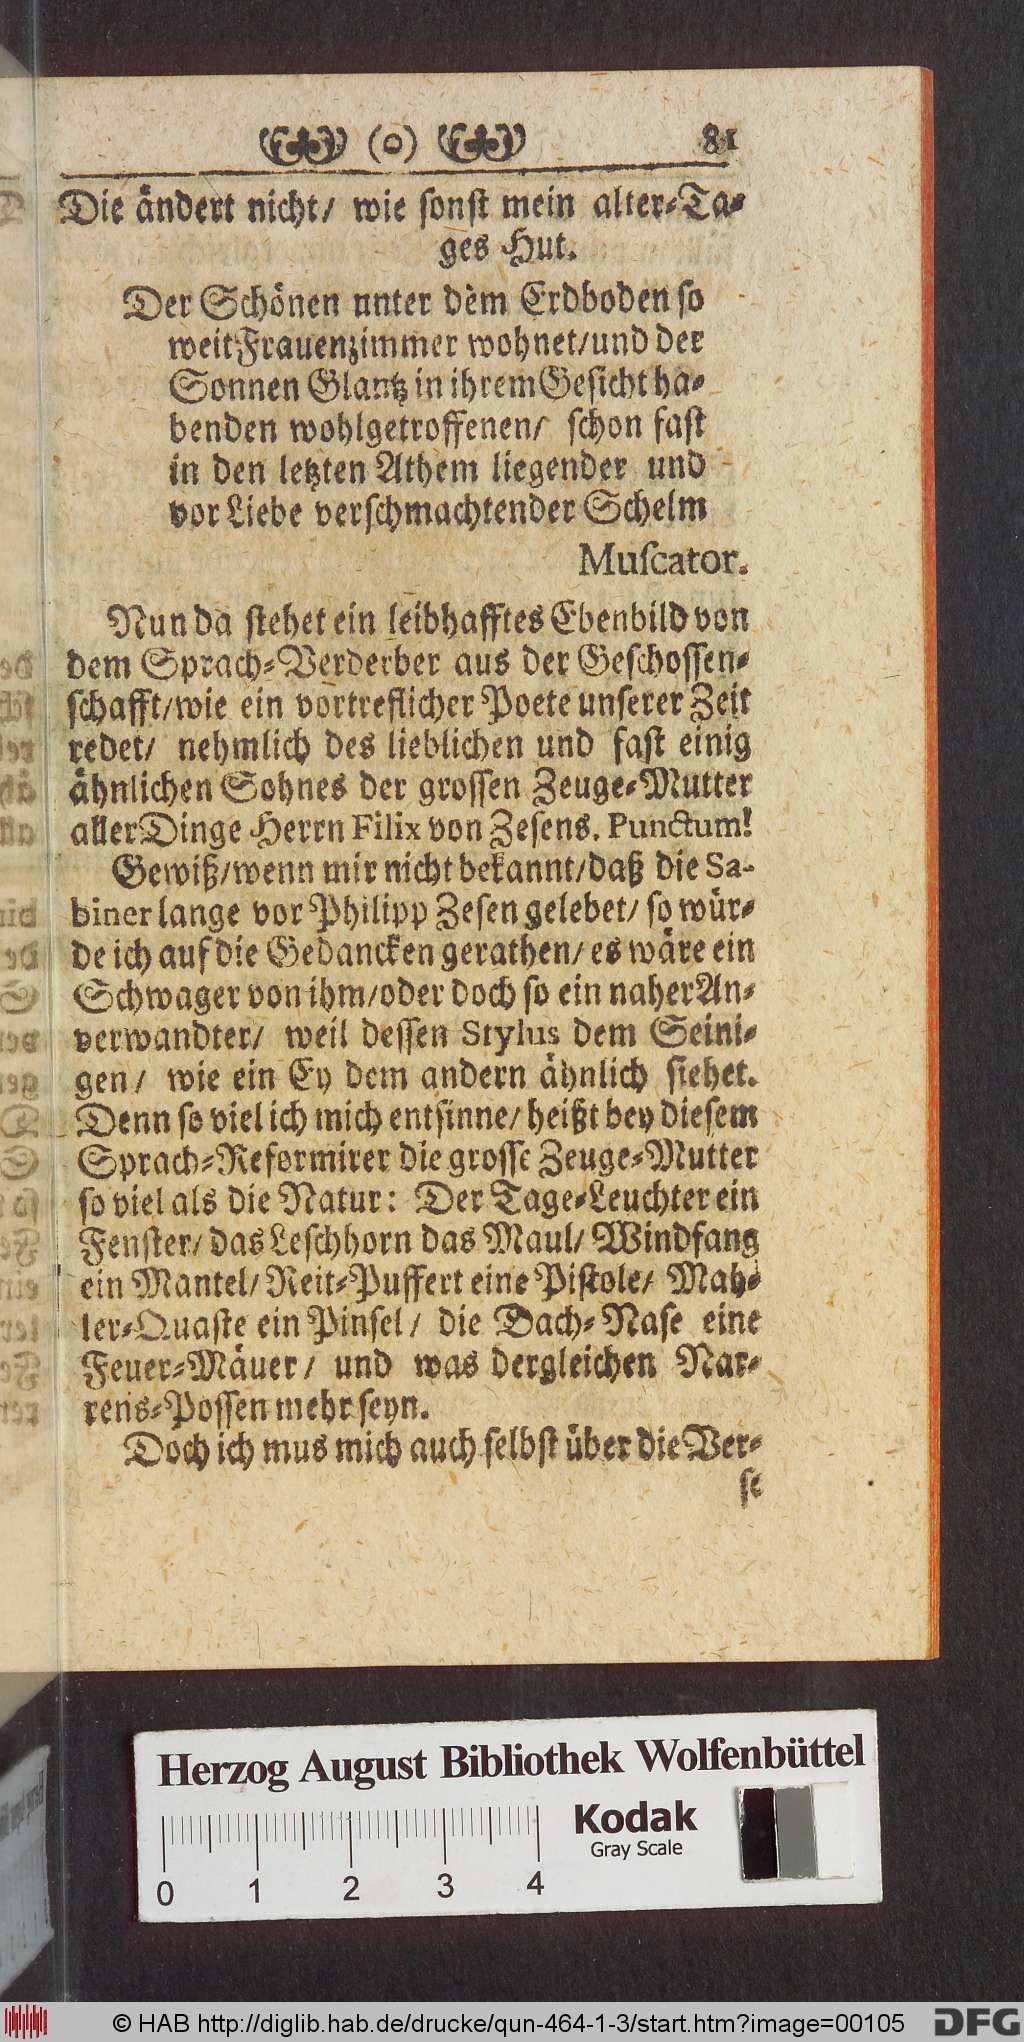 (o) 81
Die ändert nicht/ wie sonst mein alter-Ta-
ges Hut.
Der Schönen unter dem Erdboden so
weit Frauenzimmer wohnet/und der
Sonnen Glantz in ihrem Gesicht ha-
benden wohlgetroffenen/ schon fast
in den letzten Athem liegender und
vor Liebe verschmachtender Schelm
Muscator.
Nun da stehet ein leibhafftes Ebenbild von
dem Sprach-Verderber aus der Geschossen-
schafft/wie ein vortreflicher Poete unserer Zeit
redet/ nehmlich des lieblichen und fast einig
ähnlichen Sohnes der grossen Zeuge-Mutter
aller Dinge Herrn Filix von Zesens. Punctum!
Gewiß/wenn mir nicht bekannt/daß die Sa-
biner lange vor Philipp Zesen gelebet/ so wür-
de ich auf die Gedancken gerathen/ es wäre ein
Schwager von ihm/oder doch so ein naher An-
verwandter/ weil dessen Stylus dem Seini-
gen/ wie ein Ey dem andern ähnlich siehet.
Denn so viel ich mich entsinne/ heißt bey diesem
Sprach-Reformirer die grosse Zeuge-Mutter
so viel als die Natur: Der Tage-Leuchter ein
Fenster/ das Leschhorn das Maul/ Windfang
ein Mantel/ Reit-Puffert eine Pistole/ Mah-
ler-Quaste ein Pinsel/ die Dach-Nase eine
Feuer-Mäuer/ und was dergleichen Nar-
rens-Possen mehr seyn.
Doch ich mus mich auch selbst über die Ver-
se
Herzog August Bibliothek Wolfenbüttel
Kodak
Gray Scale
0 1 2 3 4
© HAB http://diglib.hab.de/drucke/qun-464-1-3/start.htm?image=00105 DFG